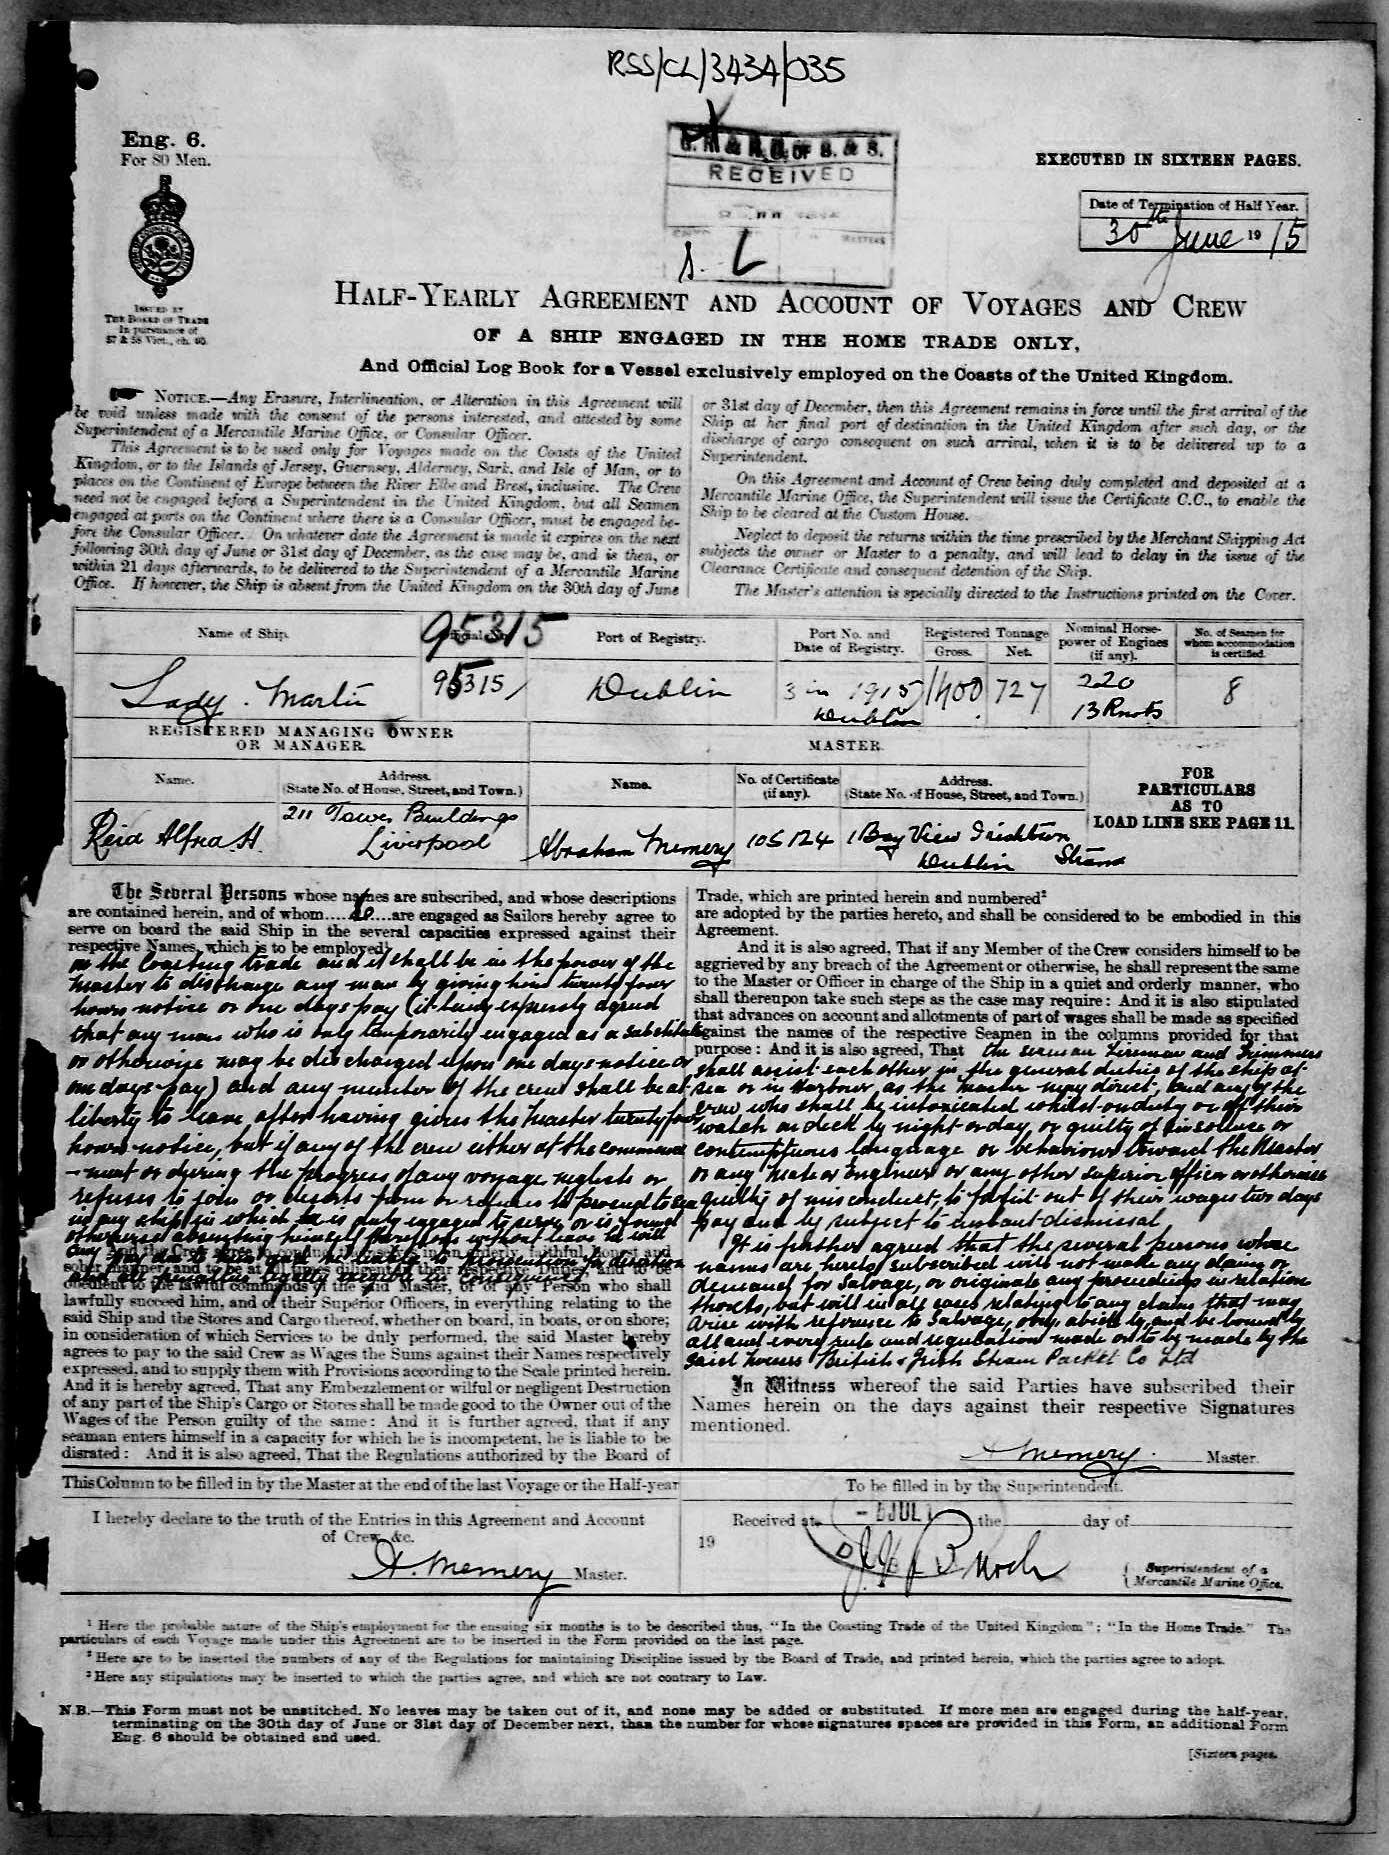 RSS/CL/3434/035
Eng. 6.
For 80 Men.
RECEIVED
EXECUTED IN SIXTEEN PAGES.
Date of Termination of Half Year.
30th June 1915
ISSUED BY
THE BOARD OF TRADE
In pursuance of
57 & 58 Vict., ch. 60.
HALF-YEARLY AGREEMENT AND ACCOUNT OF VOYAGES AND CREW
OF A SHIP ENGAGED IN THE HOME TRADE ONLY,
And Official Log Book for a Vessel exclusively employed on the Coasts of the United Kingdom.
NOTICE.—Any Erasure, Interlineation, or Alteration in this Agreement will
be void unless made with the consent of the persons interested, and attested by some
Superintendent of a Mercantile Marine Office, or Consular Officer.
This Agreement is to be used only for Voyages made on the Coasts of the United
Kingdom, or to the Islands of Jersey, Guernsey, Alderney, Sark, and Isle of Man, or to
places on the Continent of Europe between the River Elbe and Brest, inclusive. The Crew
need not be engaged before a Superintendent in the United Kingdom, but all Seamen
engaged at ports on the Continent where there is a Consular Officer, must be engaged be-
fore the Consular Officer. On whatever date the Agreement is made it expires on the next
following 30th day of June or 31st day of December, as the case may be, and is then, or
within 21 days afterwards, to be delivered to the Superintendent of a Mercantile Marine
Office. If however, the Ship is absent from the United Kingdom on the 30th day of June
or 31st day of December, then this Agreement remains in force until the first arrival of the
Ship at her final port of destination in the United Kingdom after such day, or the
discharge of cargo consequent on such arrival, when it is to be delivered up to a
Superintendent.
On this Agreement and Account of Crew being duly completed and deposited at a
Mercantile Marine Office, the Superintendent will issue the Certificate C.C., to enable the
Ship to be cleared at the Custom House.
Neglect to deposit the returns within the time prescribed by the Merchant Shipping Act
subjects the owner or Master to a penalty, and will lead to delay in the issue of the
Clearance Certificate and consequent detention of the Ship.
The Master's attention is specially directed to the Instructions printed on the Cover.
95315
Name of Ship.
Official No.
Port of Registry.
Port No. and
Date of Registry.
Registered Tonnage
Gross. Net.
Nominal Horse-
power of Engines
(if any).
No. of Seamen for
whom accommodation
is certified.
Lady Martin 95315 Dublin 3 in 1915 Dublin 1400 727 220 13 Knots 8
REGISTERED MANAGING OWNER
OR MANAGER.
MASTER.
Name.
Address.
(State No. of House, Street, and Town.)
Name.
No. of Certificate
(if any).
Address.
(State No. of House, Street, and Town.)
FOR
PARTICULARS
AS TO
LOAD LINE SEE PAGE 11.
Reid Alfred H. 211 Tower Buildings Liverpool
Abraham Memery 105124 1 Bay View Irishtown Strand Dublin
The Several Persons whose names are subscribed, and whose descriptions
are contained herein, and of whom are engaged as Sailors hereby agree to
serve on board the said Ship in the several capacities expressed against their
respective Names, which is to be employed¹
in the Coasting trade and it shall be in the power of the
Master to discharge any man by giving him twenty four
hours notice or one days pay (it being expressly agreed
that any man who is only temporarily engaged as a substitute
or otherwise may be discharged upon one days notice or
one days pay) and any member of the crew shall be at
liberty to leave after having given the Master twenty four
hours notice, but if any of the crew either at the commence
-ment or during the progress of any voyage neglects or
refuses to join or deserts from or refuses to proceed to sea
in any ship in which he is duly engaged to serve or is found
otherwise absenting himself therefrom without leave he will
And the Crew agree to conduct themselves in an orderly, faithful, honest and
sober manner, and to be at all times diligent in their respective Duties, and to be
obedient to the lawful commands of the said Master, or of any Person who shall
lawfully succeed him, and of their Superior Officers, in everything relating to the
said Ship and the Stores and Cargo thereof, whether on board, in boats, or on shore;
in consideration of which Services to be duly performed, the said Master hereby
agrees to pay to the said Crew as Wages the Sums against their Names respectively
expressed, and to supply them with Provisions according to the Scale printed herein.
And it is hereby agreed, That any Embezzlement or wilful or negligent Destruction
of any part of the Ship's Cargo or Stores shall be made good to the Owner out of the
Wages of the Person guilty of the same: And it is further agreed, that if any
seaman enters himself in a capacity for which he is incompetent, he is liable to be
disrated: And it is also agreed, That the Regulations authorized by the Board of
Trade, which are printed herein and numbered²
are adopted by the parties hereto, and shall be considered to be embodied in this
Agreement.
And it is also agreed, That if any Member of the Crew considers himself to be
aggrieved by any breach of the Agreement or otherwise, he shall represent the same
to the Master or Officer in charge of the Ship in a quiet and orderly manner, who
shall thereupon take such steps as the case may require: And it is also stipulated
that advances on account and allotments of part of wages shall be made as specified
against the names of the respective Seamen in the columns provided for that
purpose: And it is also agreed, That the seaman Fireman and Trimmers
shall assist each other in the general duties of the ship at
sea or in Harbour, as the Master may direct, and any of the
crew who shall be intoxicated whilst on duty or off their
watch on deck by night or day, or guilty of insolence or
contemptuous language or behaviour toward the Master
or any Mate or Engineer or any other superior Officer or otherwise
guilty of misconduct, to forfeit out of their wages two days
pay and be subject to instant dismissal
It is further agreed that the several persons whose
names are hereto subscribed will not make any claim or
demand for Salvage, or originate any proceedings in relation
thereto, but will in all cases relating to any claim that may
arise with reference to Salvage, obey, abide by, and be bound by
all and every rule and regulation made or to be made by the
said owners British & Irish Steam Packet Co Ltd
In Witness whereof the said Parties have subscribed their
Names herein on the days against their respective Signatures
mentioned.
A Memery Master.
This Column to be filled in by the Master at the end of the last Voyage or the Half-year
To be filled in by the Superintendent.
I hereby declare to the truth of the Entries in this Agreement and Account
of Crew, &c.
A. Memery Master.
Received at the day of
19
JUL
Superintendent of a
Mercantile Marine Office.
¹ Here the probable nature of the Ship's employment for the ensuing six months is to be described thus, "In the Coasting Trade of the United Kingdom"; "In the Home Trade." The
particulars of each Voyage made under this Agreement are to be inserted in the Form provided on the last page.
² Here are to be inserted the numbers of any of the Regulations for maintaining Discipline issued by the Board of Trade, and printed herein, which the parties agree to adopt.
³ Here any stipulations may be inserted to which the parties agree, and which are not contrary to Law.
N.B.—This Form must not be unstitched. No leaves may be taken out of it, and none may be added or substituted. If more men are engaged during the half-year,
terminating on the 30th day of June or 31st day of December next, than the number for whose signatures spaces are provided in this Form, an additional Form
Eng. 6 should be obtained and used.
[Sixteen pages.